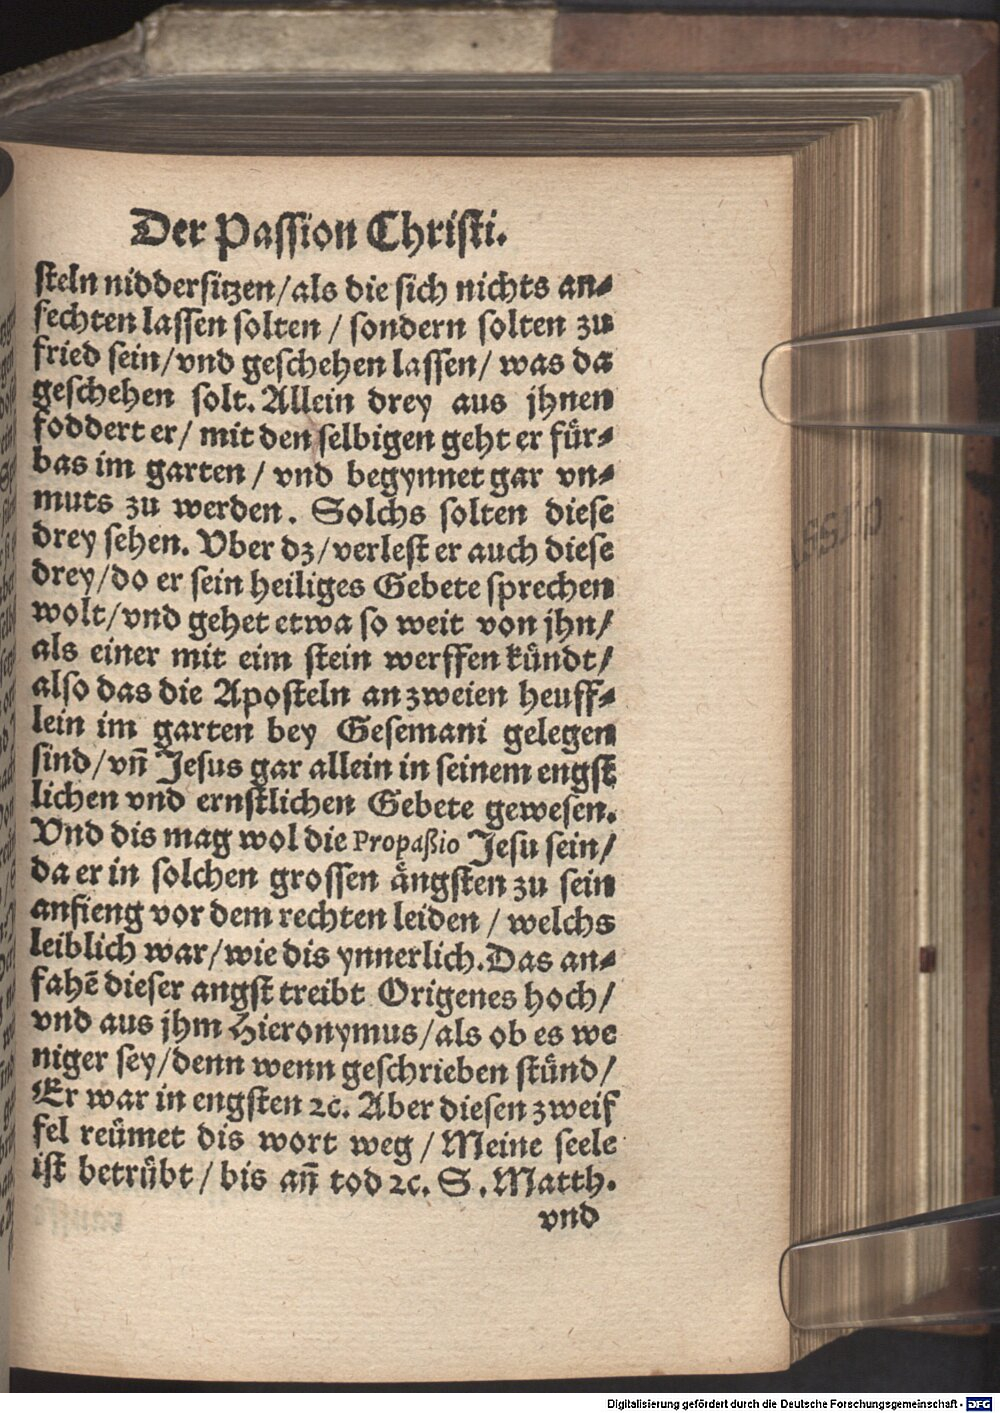 Der Passion Christi.
steln niddersitzen/als die sich nichts an⸗
fechten lassen solten / sondern solten zu
fried sein/vnd geschehen lassen/ was da
geschehen solt. Allein drey aus jhnen
foddert er/ mit den selbigen geht er für⸗
bas im garten / vnd begynnet gar vn⸗
muts zu werden. Solchs solten diese
drey sehen. Vber dz/verlest er auch diese
drey/do er sein heiliges Gebete sprechen
wolt/vnd gehet etwa so weit von jhn/
als einer mit eim stein werffen kündt/
also das die Aposteln an zweien heuff⸗
lein im garten bey Gesemani gelegen
sind/vn̄ Jesus gar allein in seinem engst
lichen vnd ernstlichen Gebete gewesen.
Vnd dis mag wol die Propaßio Jesu sein/
da er in solchen grossen ängsten zu sein
anfieng vor dem rechten leiden / welchs
leiblich war/wie dis ynnerlich. Das an⸗
fahē dieser angst treibt Origenes hoch/
vnd aus jhm Hieronymus/als ob es we
niger sey/denn wenn geschrieben stünd/
Er war in engsten ꝛc. Aber diesen zweif
fel reümet dis wort weg / Meine seele
ist betrübt / bis an̄ tod ꝛc. S. Matth.
vnd
Digitalisierung gefördert durch die Deutsche Forschungsgemeinschaft - DFG